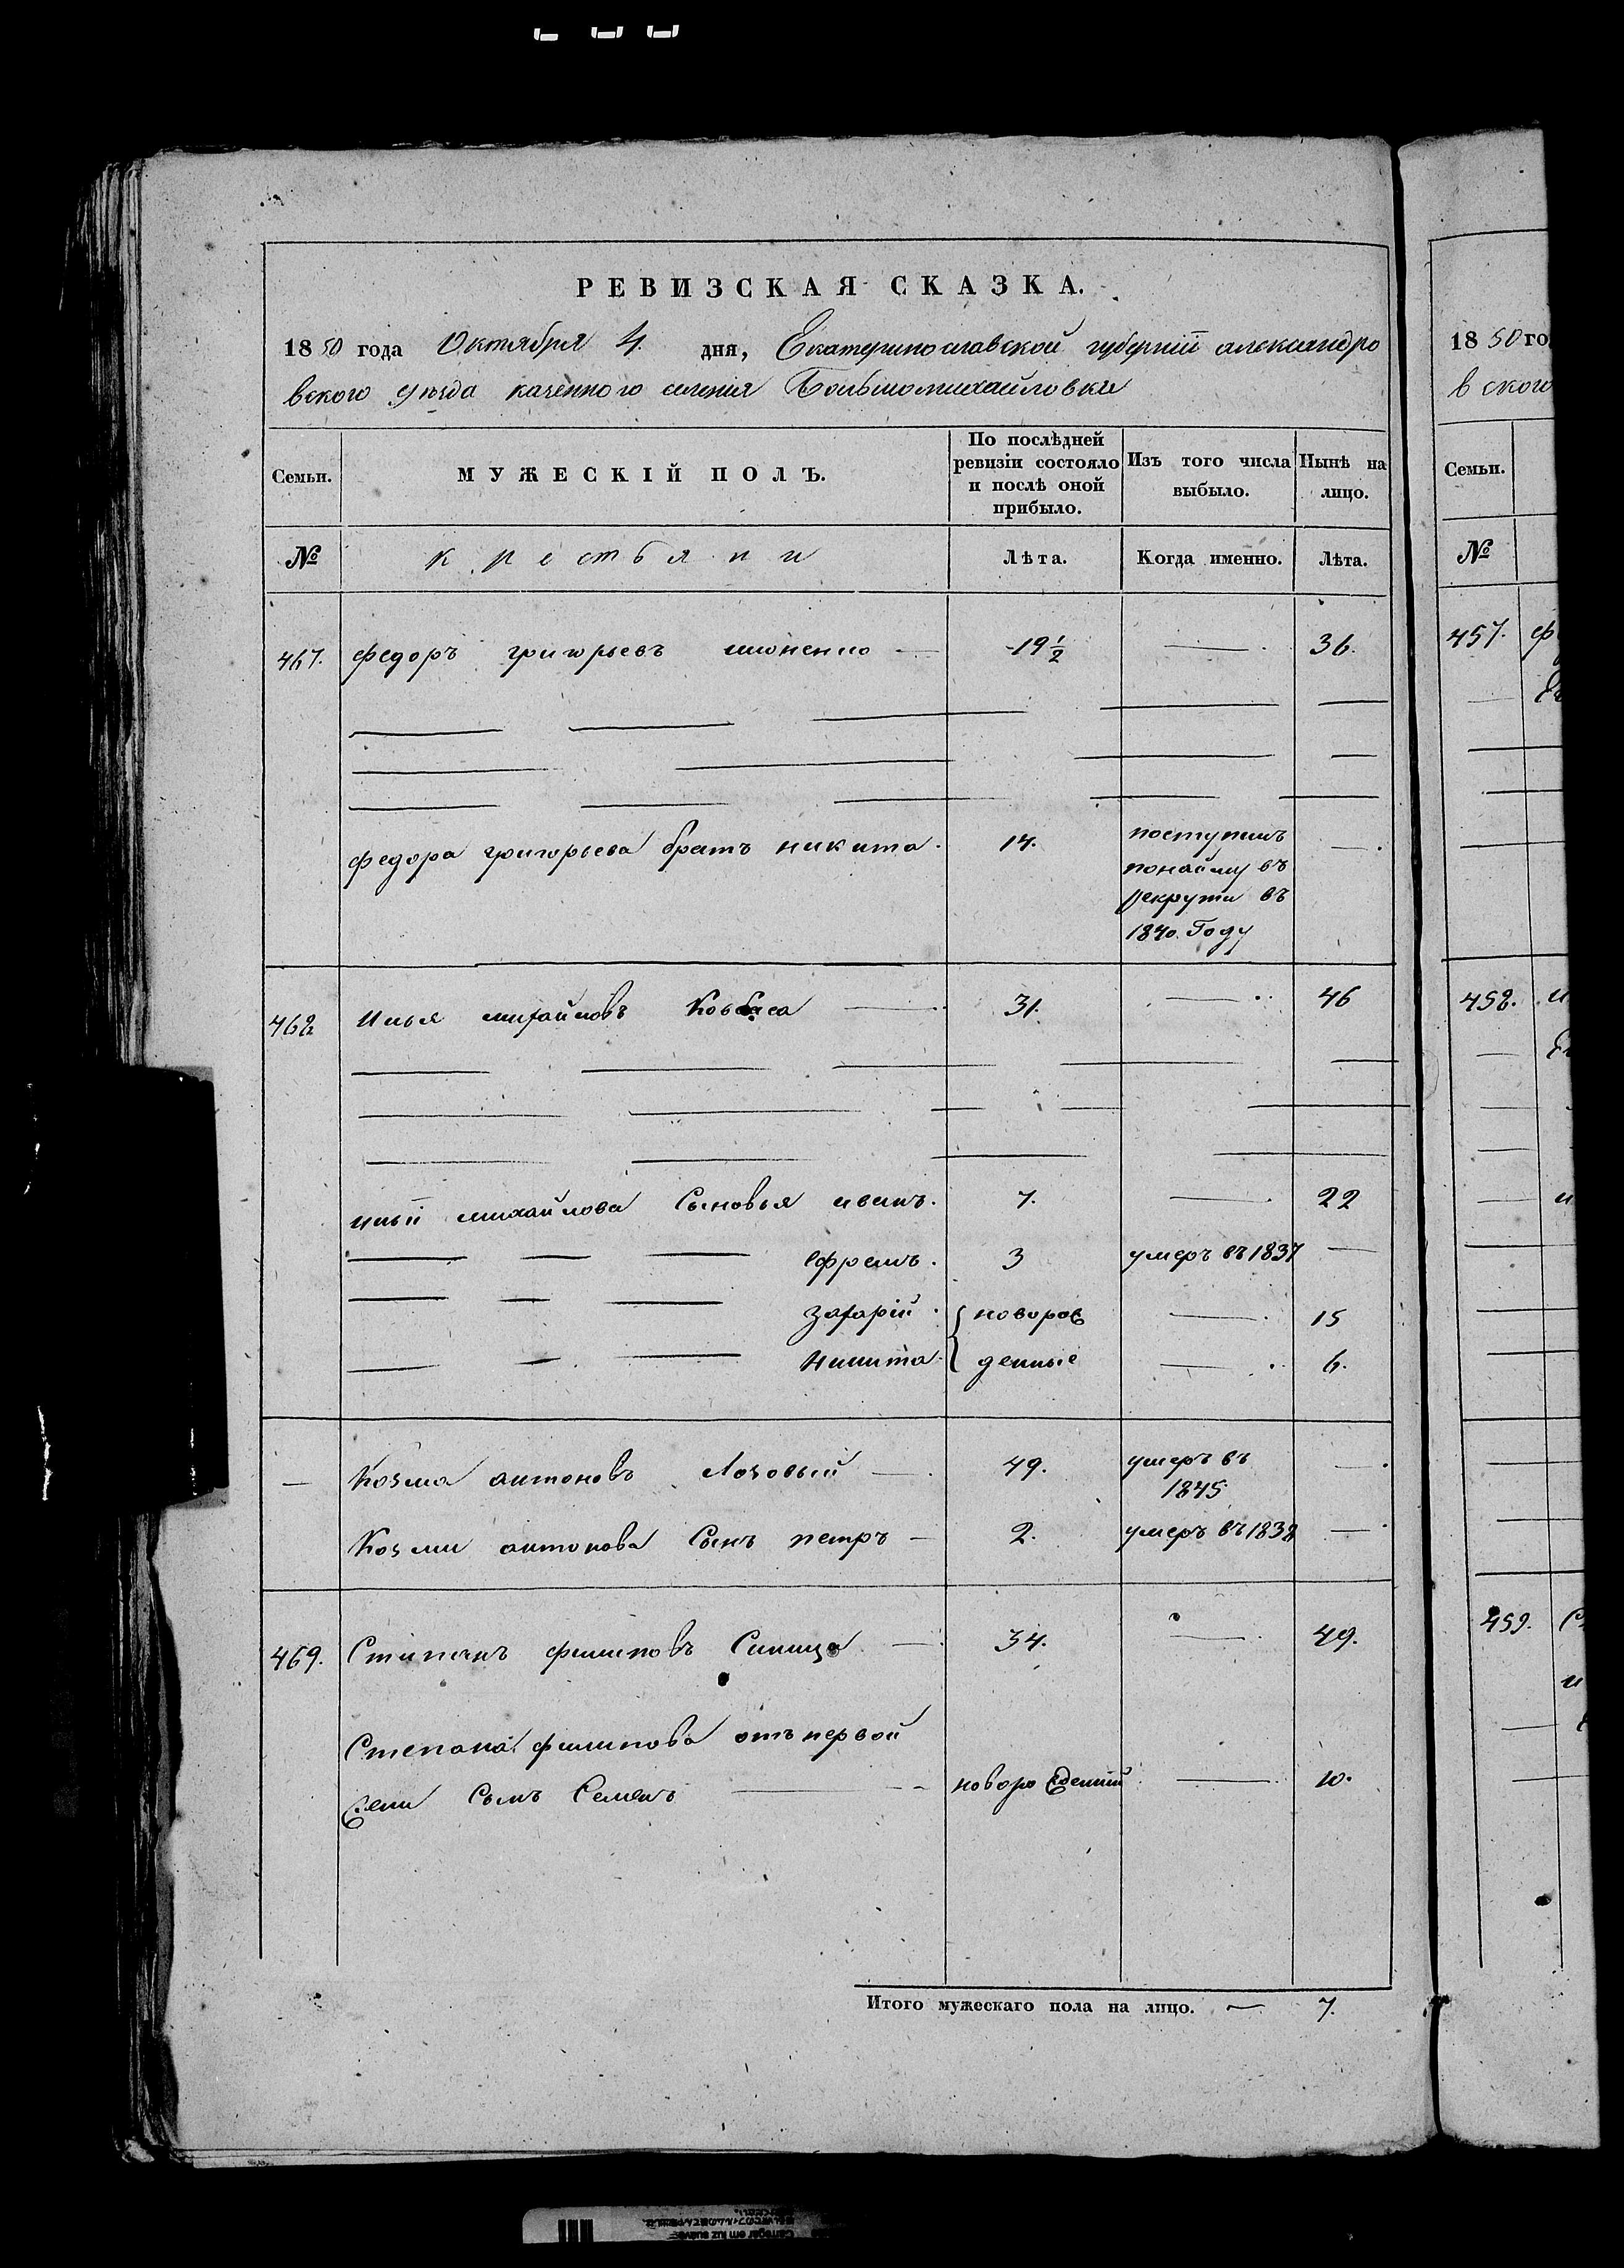 РЕВИЗСКАЯ СКАЗКА.
1850 года Октября 4. дня, Екатеринославской губерніи александро
вского уезда казенного селенія Большомихайловки
Семьи. МУЖЕСКІЙ ПОЛЪ. По послѣдней ревизіи состояло и послѣ оной прибыло. Изъ того числа выбыло. Нынѣ на лицо.
№ крестьяни Лѣта. Когда именно. Лѣта.
467. федоръ григорьевъ 19 1/2 36.
федора григорьева братъ никита. 14. поступилъ
понайму въ
рекруты въ
1840. Году
468 Илья михайловъ Ковбаса 31. 46
ильи михайлова Сыновья иванъ. 7. 22
ефремъ. 3 умеръ въ 1837
Захарій новорож 15
Никита денные 6.
Козма антоновъ Лозовый 49. умеръ въ
1845
Козми антонова Сынъ петръ 2. умеръ въ 1838
469. Стипанъ филиповъ Синица 34. 49.
Степана филипова отъ первой
жени Сынъ Семенъ новорожденний 10.
Итого мужескаго пола на лицо. 7.
1850 го
вского
Семьи.
№
457.
458.
459.